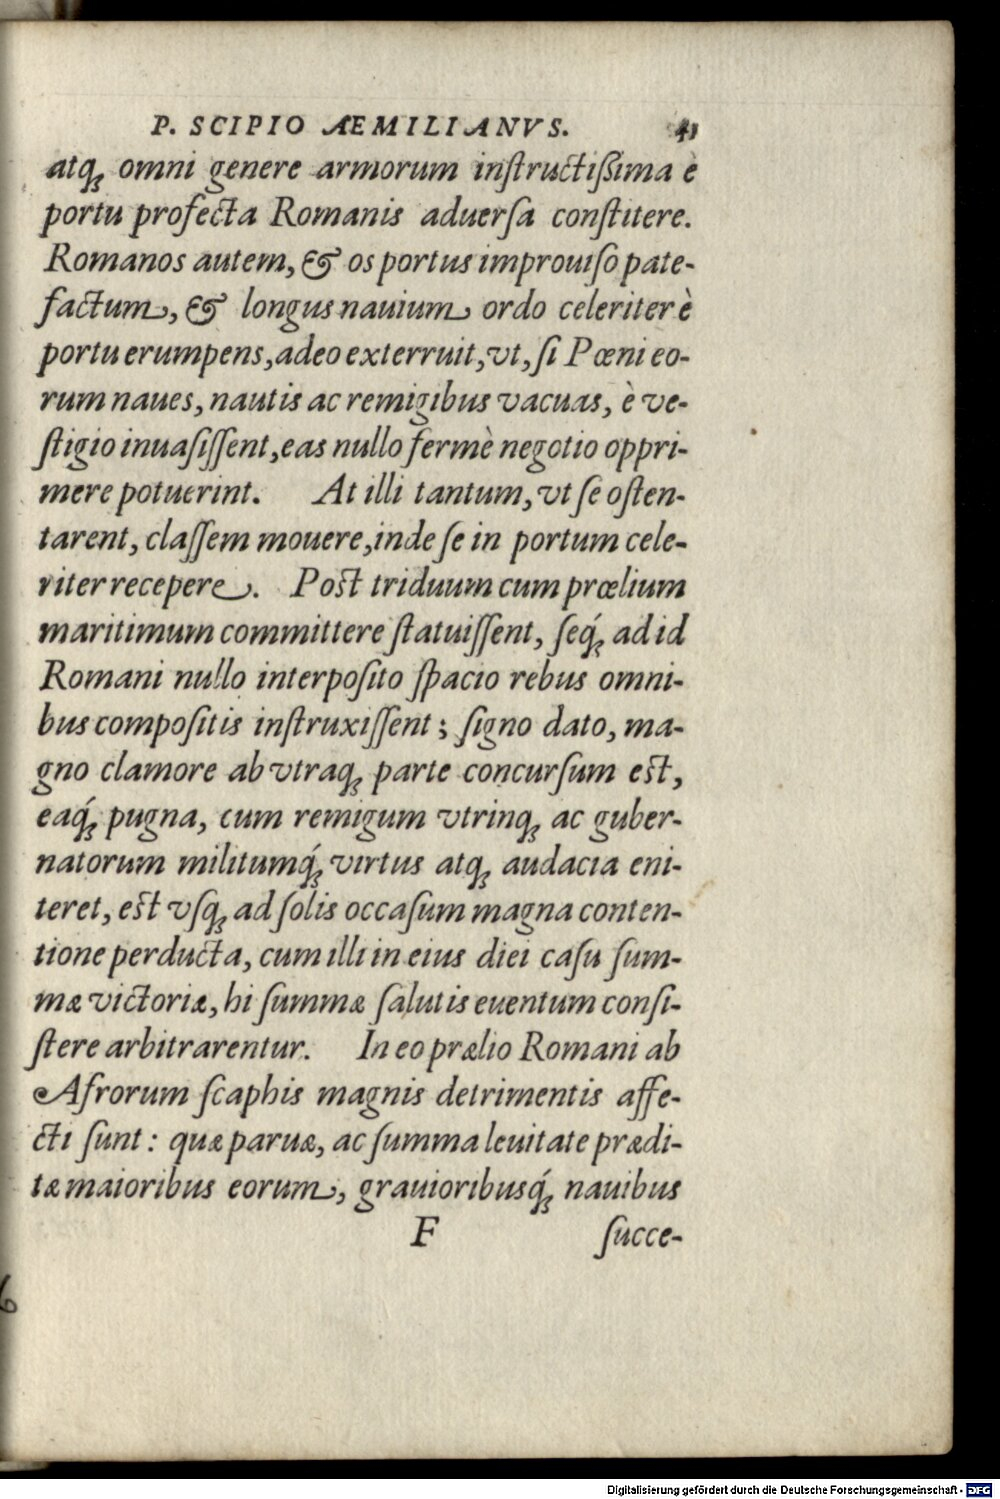 P. SCIPIO AEMILIANVS. 41
atq́; omni genere armorum inſtructiſsima è
portu profecta Romanis aduerſa conſtitere.
Romanos autem, & os portus improuiſo pate-
factum, & longus nauium ordo celeriter è
portu erumpens, adeo exterruit, vt, ſi Pœni eo-
rum naues, nautis ac remigibus vacuas, è ve-
ſtigio inuaſiſſent, eas nullo fermè negotio oppri-
mere potuerint. At illi tantum, vt ſe oſten-
tarent, claſſem mouere, inde ſe in portum cele-
riter recepere. Poſt triduum cum prœlium
maritimum committere ſtatuiſſent, ſeq́; ad id
Romani nullo interpoſito ſpacio rebus omni-
bus compoſitis inſtruxiſſent; ſigno dato, ma-
gno clamore ab vtraq; parte concurſum eſt,
eaq́; pugna, cum remigum vtrinq; ac guber-
natorum militumq́; virtus atq; audacia eni-
teret, eſt vſq; ad ſolis occaſum magna conten-
tione perducta, cum illi in eius diei caſu ſum-
mæ victoriæ, hi ſummæ ſalutis euentum conſi-
ſtere arbitrarentur. In eo prælio Romani ab
Afrorum ſcaphis magnis detrimentis affe-
cti ſunt: quæ paruæ, ac ſumma leuitate prædi-
tæ maioribus eorum, grauioribusq́; nauibus
F ſucce-
6
Digitalisierung gefördert durch die Deutsche Forschungsgemeinschaft - DFG